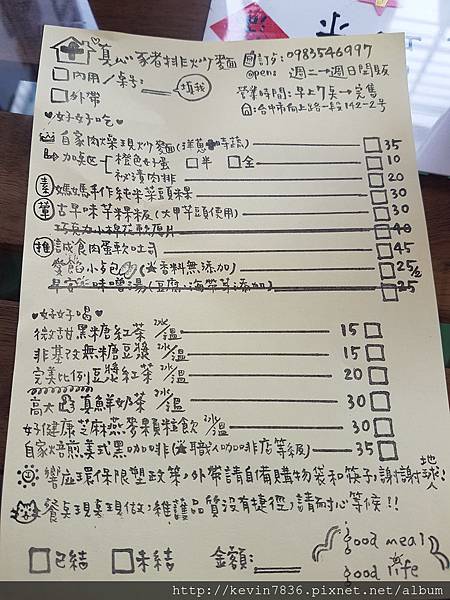 真心豬排炒麵 訂:0983546997
open: 週二→週日開販
□內用/桌號: 填我
□外帶
營業時間:早上7点→完售
台中市向上路一段142-2号
♥好好吃♥
自家肉燥現炒麵(洋蔥+青蔬) □35
加點區 橙色好蛋 □半 □全 □10
秘漬肉排 □20
素 媽媽手作純米菜頭粿 □30
葷 古早味芋粿板(大甲芋頭使用) □30
40
推 誠食肉蛋軟吐司 □45
愛餡小包(★香料無添加) □25/2
早安味噌湯(豆腐.海帶芽添加) □25
♥好好喝♥
微甜黑糖紅茶 冰/溫 15□
非基改無糖豆漿 冰/溫 15□
完美比例豆漿紅茶 冰/溫 20□
高大真鮮奶茶 冰/溫 30□
好健康芝麻燕麥顆粒飲 冰/溫 30□
自家焙煎美式黑咖啡(★職人咖啡店等級) 35□
響應環保限塑政策,外帶請自備購物袋和筷子,謝謝地球人
餐點現點現做,維護品質沒有捷徑,請耐心等候!!
□已結 □未結 金額:
good meal
good life
http://kevin7836.pixnet.net/album